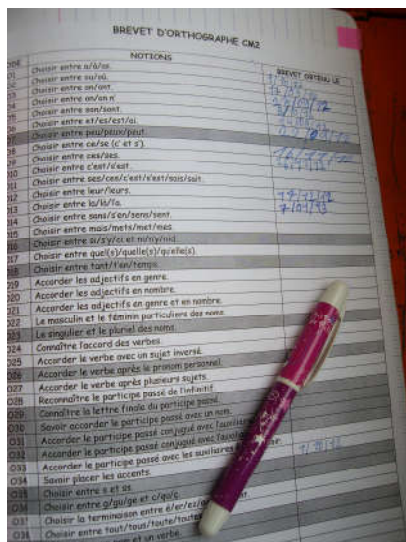 BREVET D'ORTHOGRAPHE CM2
NOTIONS
BREVET OBTENU LE
Choisir entre a/à/as.
Choisir entre ou/où.
Choisir entre on/ont.
Choisir entre on/on n'
Choisir entre son/sont.
Choisir entre et/es/est/ai.
Choisir entre peu/peux/peut.
Choisir entre ce/se (c' et s').
Choisir entre ces/ses.
O10 Choisir entre c'est/s'est.
O11 Choisir entre ses/ces/c'est/s'est/sais/sait.
O12 Choisir entre leur/leurs.
O13 Choisir entre la/là/l'a.
O14 Choisir entre sans/s'en/sens/sent.
O15 Choisir entre mais/mets/met/mes.
O16 Choisir entre si/s'y/ci et ni/n'y/nid.
O17 Choisir entre quel(s)/quelle(s)/qu'elle(s).
O18 Choisir entre tant/t'en/temps.
O19 Accorder les adjectifs en genre.
O20 Accorder les adjectifs en nombre.
O21 Accorder les adjectifs en genre et en nombre.
O22 Le masculin et le féminin particuliers des noms.
O23 Le singulier et le pluriel des noms.
O24 Connaître l'accord des verbes.
O25 Accorder le verbe avec un sujet inversé.
O26 Accorder le verbe après le pronom personnel.
O27 Accorder le verbe après plusieurs sujets.
O28 Reconnaître le participe passé de l'infinitif.
O29 Connaître la lettre finale du participe passé.
O30 Savoir accorder le participe passé avec un nom.
O31 Accorder le participe passé conjugué avec l'auxiliaire
O32 Accorder le participe passé conjugué avec
O33 Accorder le participe passé avec les auxiliaires
O34 Savoir placer les accents.
O35 Choisir entre s et ss.
O36 Choisir entre g/gu/ge et c/qu/ç.
O37 Choisir la terminaison entre é/er/ez
O38 Choisir entre tout/tous/toute/toutes
et un verbe.